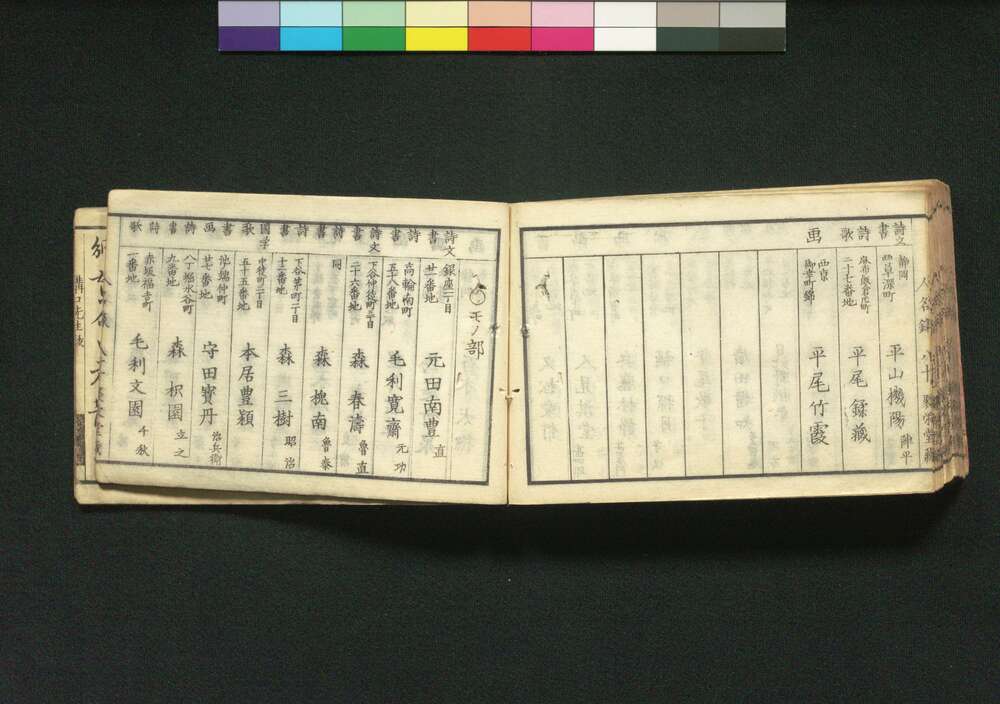 詩文書
静岡
西草深町
平山機陽 陣平
詩歌
麻布飯倉片町
二十七番地
平尾鍒蔵
画
西京
御幸町錦
平尾竹霞
モノ部
詩文書
銀座二丁目
廿一番地
元田南豊 直
詩書
高輪南町
五十八番地
毛利寛齋 元功
詩文書
下谷仲徒町三丁目
二十六番地
森春濤 魯直
詩書
同
森槐南 魯泰
詩書
下谷茅町二丁目
十三番地
森三樹 昭治
国学歌
中徒町二丁目
五十五番地
本居豊穎
書画
池端仲町
廿七番地
守田寶丹 治兵衛
詩書
八丁堀水谷町
九番地
森枳園 立之
詩歌
赤坂福吉町
一番地
毛利文園 千秋